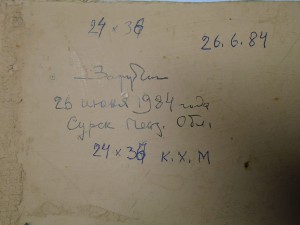 24 × 36
26.6.84
Зарубин
26 июня 1984 года
Сурск Пенз. Обл.
24 × 36 К. Х. М